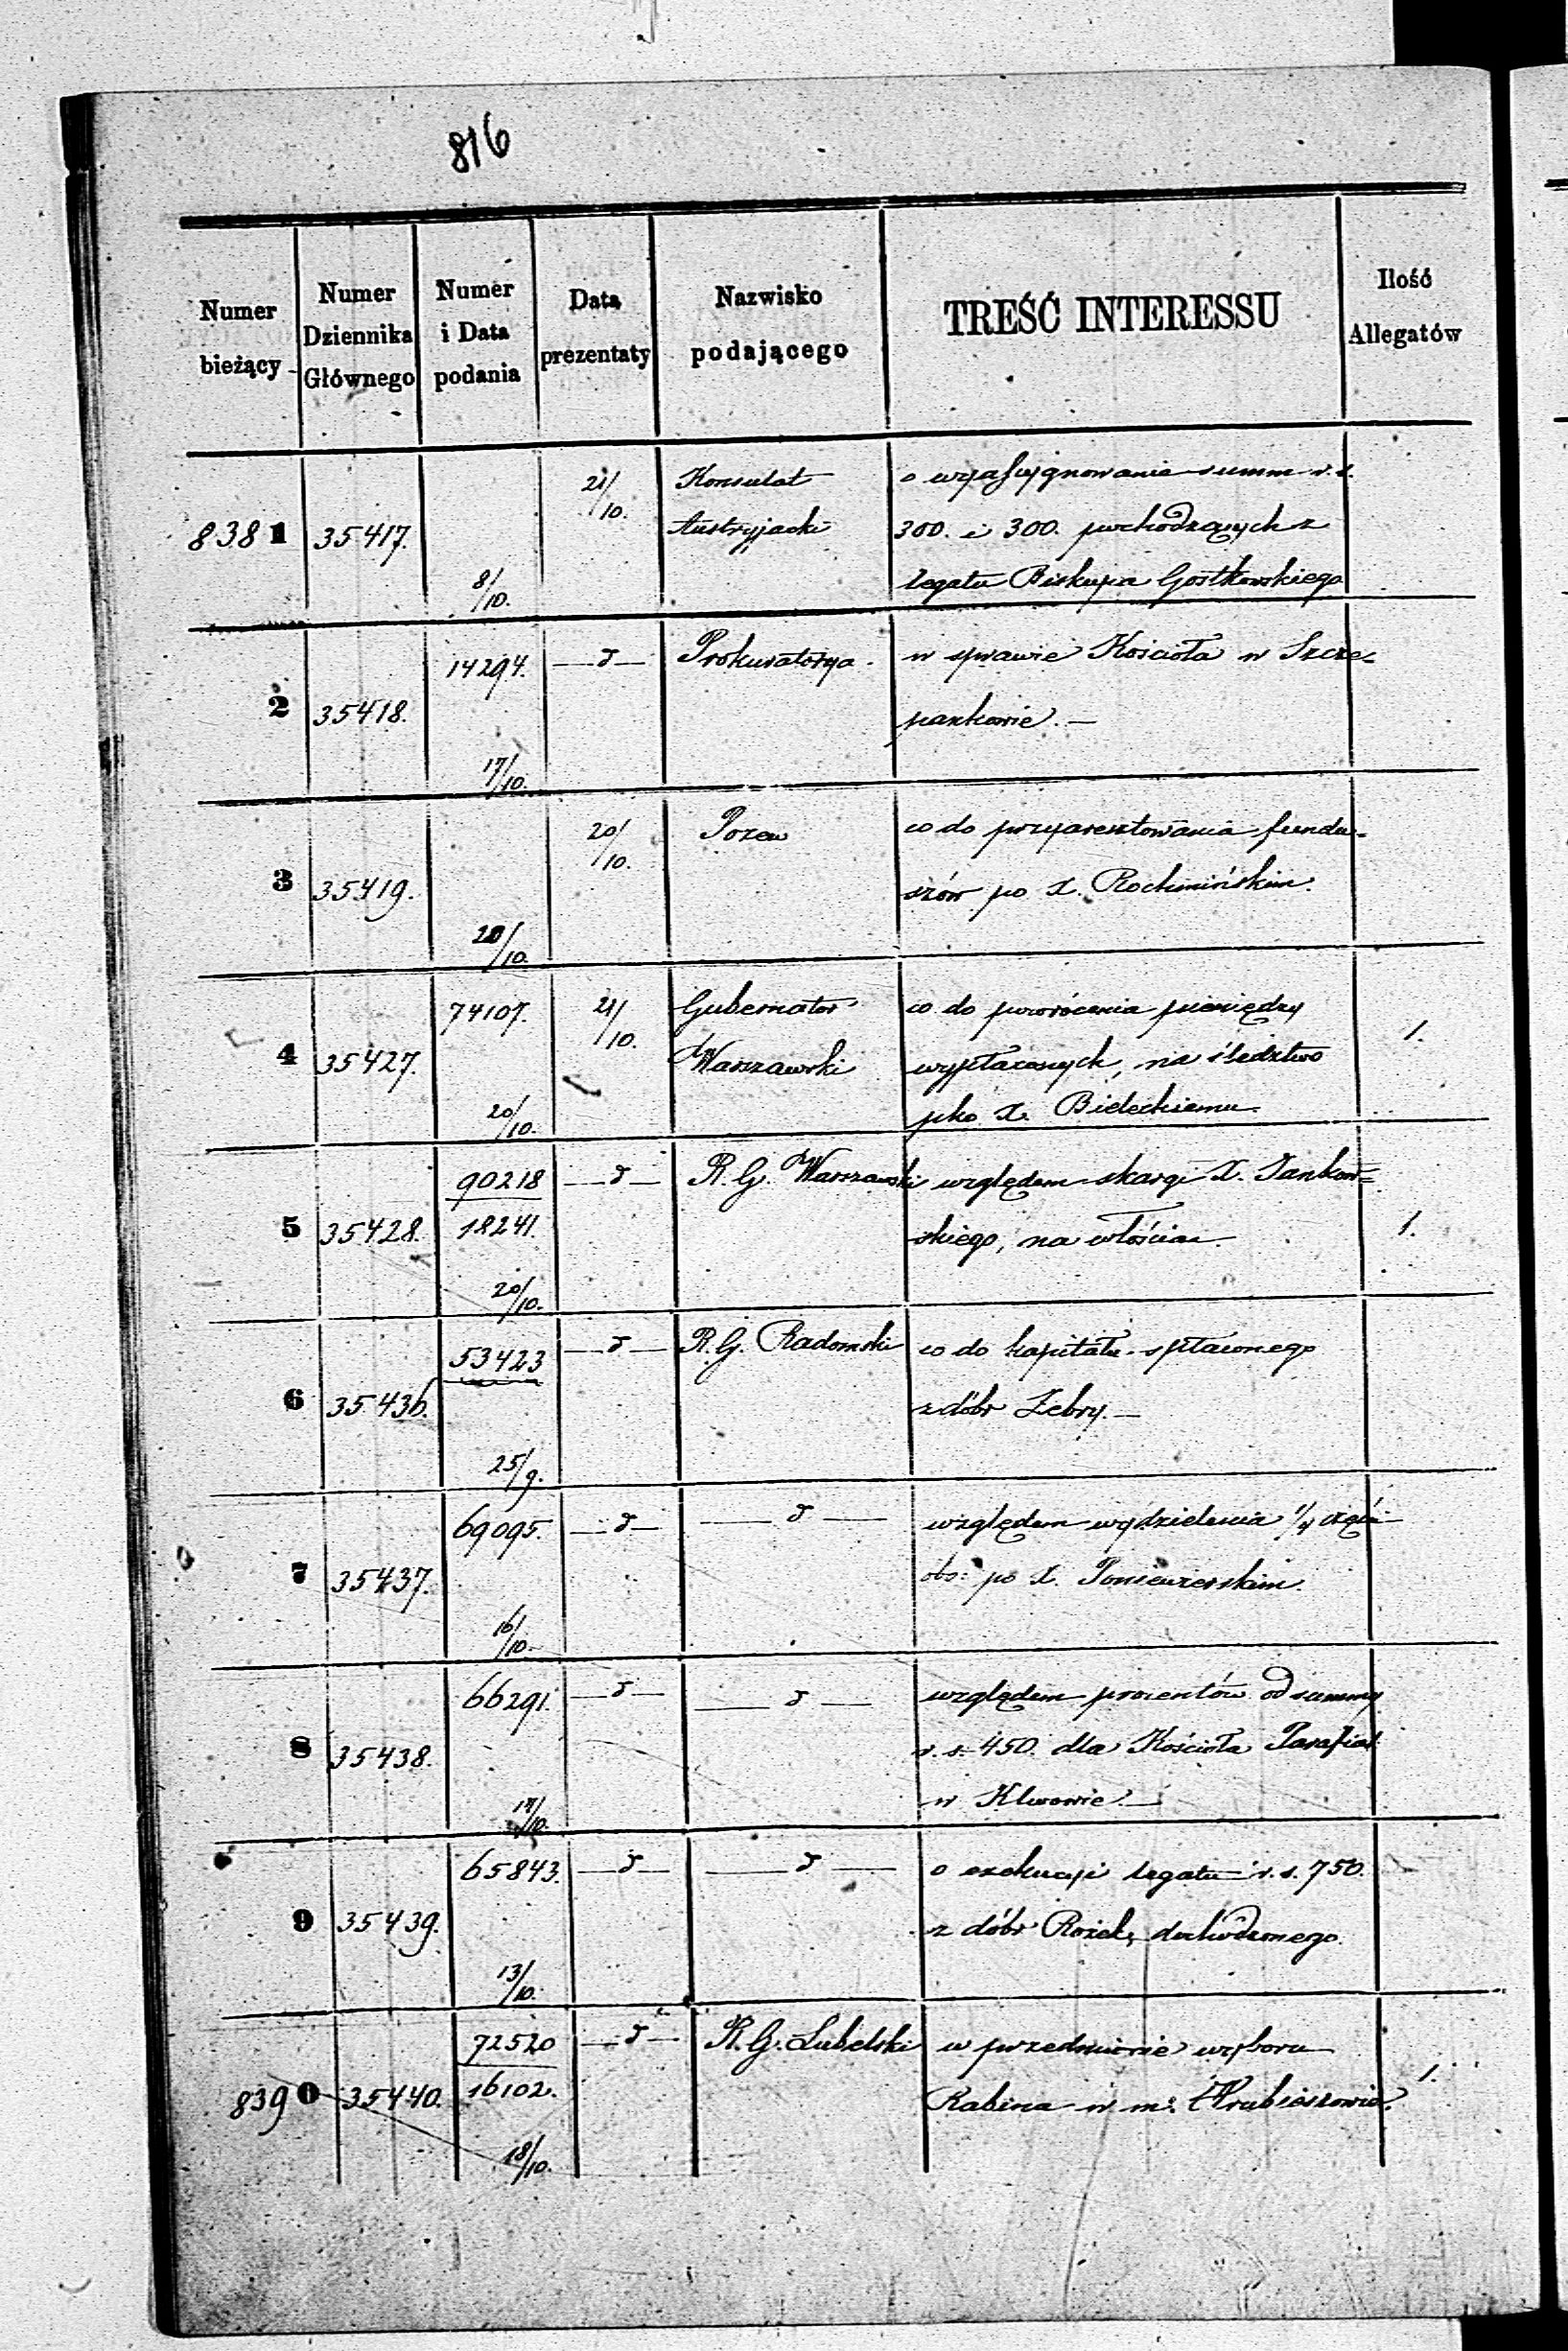 816
Numer bieżący
Numer Dziennika Głównego
Numer i Data podania
Data prezentaty
Nazwisko podającego
TREŚĆ INTERESSU
Ilość Allegatów
8381 35417. 8/10. 21/10. Konsulat Austryjacki
o wyasygnowanie summ r. s.
300. i 300. pochodzących z
legatu Biskupa Gostkowskiego
2 35418. 14294. 17/10. —d— Prokuratorya
w sprawie Kościoła w Szcze-
pankowie. —
3 35419. 20/10. 20/10. Pozew
co do przyaresztowania fundu-
szów po X. Rochmińskim.
4 35427. 74107. 20/10. 21/10. Gubernator Warszawski
co do powrócenia pieniędzy
wypłaconych, na śledztwo
pko X. Bieleckiemu.
1.
5 35428. 90218 18241. 20/10. —d— R. G. Warszawski
względem skargi X. Jankow=
skiego, na włościan.
1.
6 35436. 53423 25/9. —d— R. G. Radomski
co do kapitału spłaconego
z dóbr Zebry. —
7 35437. 69095. 16/10. —d— —d—
względem wydzielenia 1/4 części
obs: po X. Poniewierskim.
8 35438. 66291. 17/10. —d— —d—
względem procentów od summy
r. s. 450. dla Kościoła Parafial.
w Klwowie. —
9 35439. 65843. 13/10. —d— —d—
o exekucyi legatu r. s. 750.
z dóbr Rożek, dochodzonego.
8390 35440. 72520 16102. 18/10. —d— R. G. Lubelski
w przedmiocie wyboru
Rabina w m. Hrubieszowie.
1.